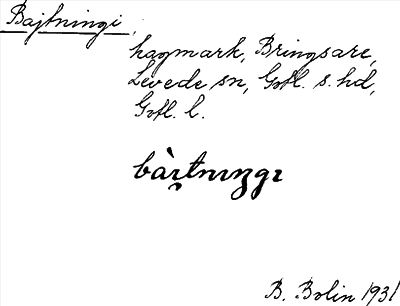 Bajtningi,
hagmark, Bringsare,
Levede sn, Gotl. s. hd,
Gotl. l.
bàı̯tnıŋgı
B. Bolin 1931